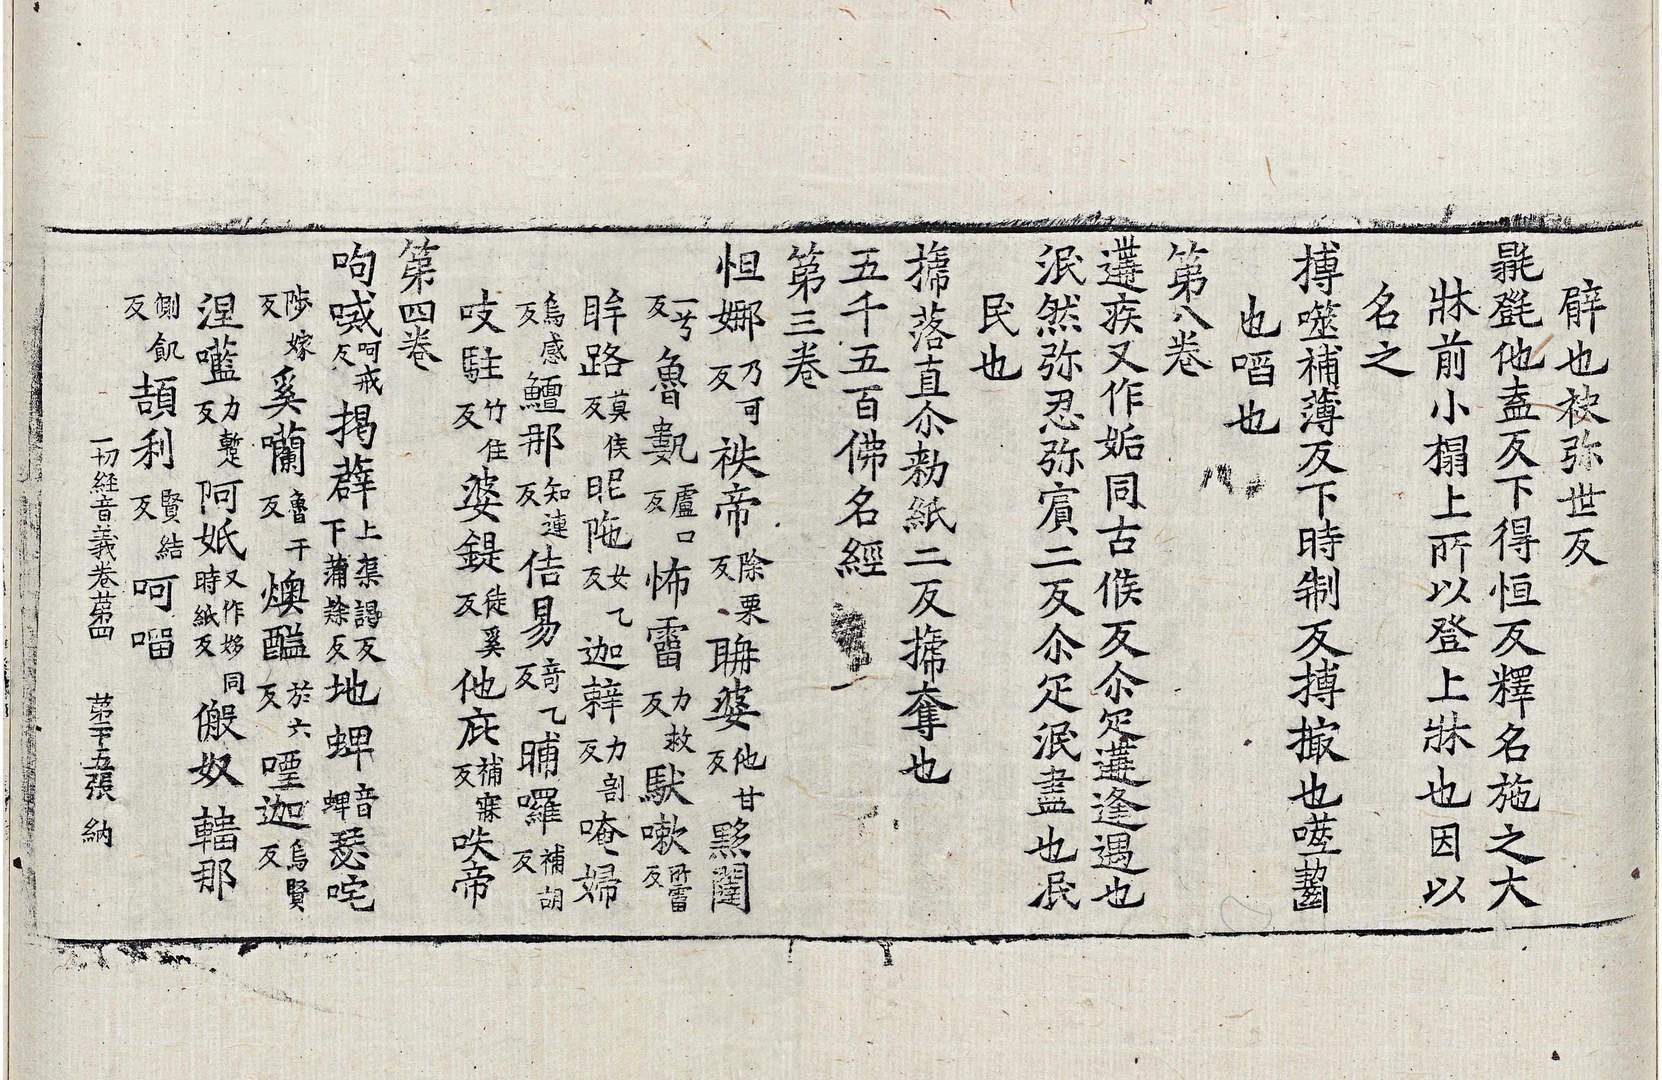 躃也袂弥世反
毾㲪他盍反下得恒反釋名施之大
牀前小榻上所以登上牀也因以
名之
搏噬補薄反下時制反搏撮也噬齧
也㗖也
第八卷
遘疾又作姤同古候反尒疋遘逢遇也
泯然弥忍弥賓二反尒疋泯盡也泯
民也
搋落直尒勑紙二反搋奪也
五千五百佛名經
第三卷
怛娜乃可反袟帝除栗反聃婆他甘反黟闍
一兮反魯㔣盧口反怖霤力救反馱嗽所霤反
眸路莫侯反昵陁女乙反迦㔣力割反唵婦
烏感反鱣那知連反佶易竒乙反晡囉補胡反
吱駐竹住反婆鍉徒奚反他庇補寐反唉帝
第四卷
呴㖑呵戒反揭薜上渠謁反下蒲䏶反地蜱音蜱瑟咤
陟嫁反奚囒魯干反燠醯於六反㘻迦烏賢反
涅嚂力蹔反阿妷又作姼同時紙反儞奴䡩那
側飢反頡利賢結反呵㗖
一切経音義卷苐四　苐二十五張　納